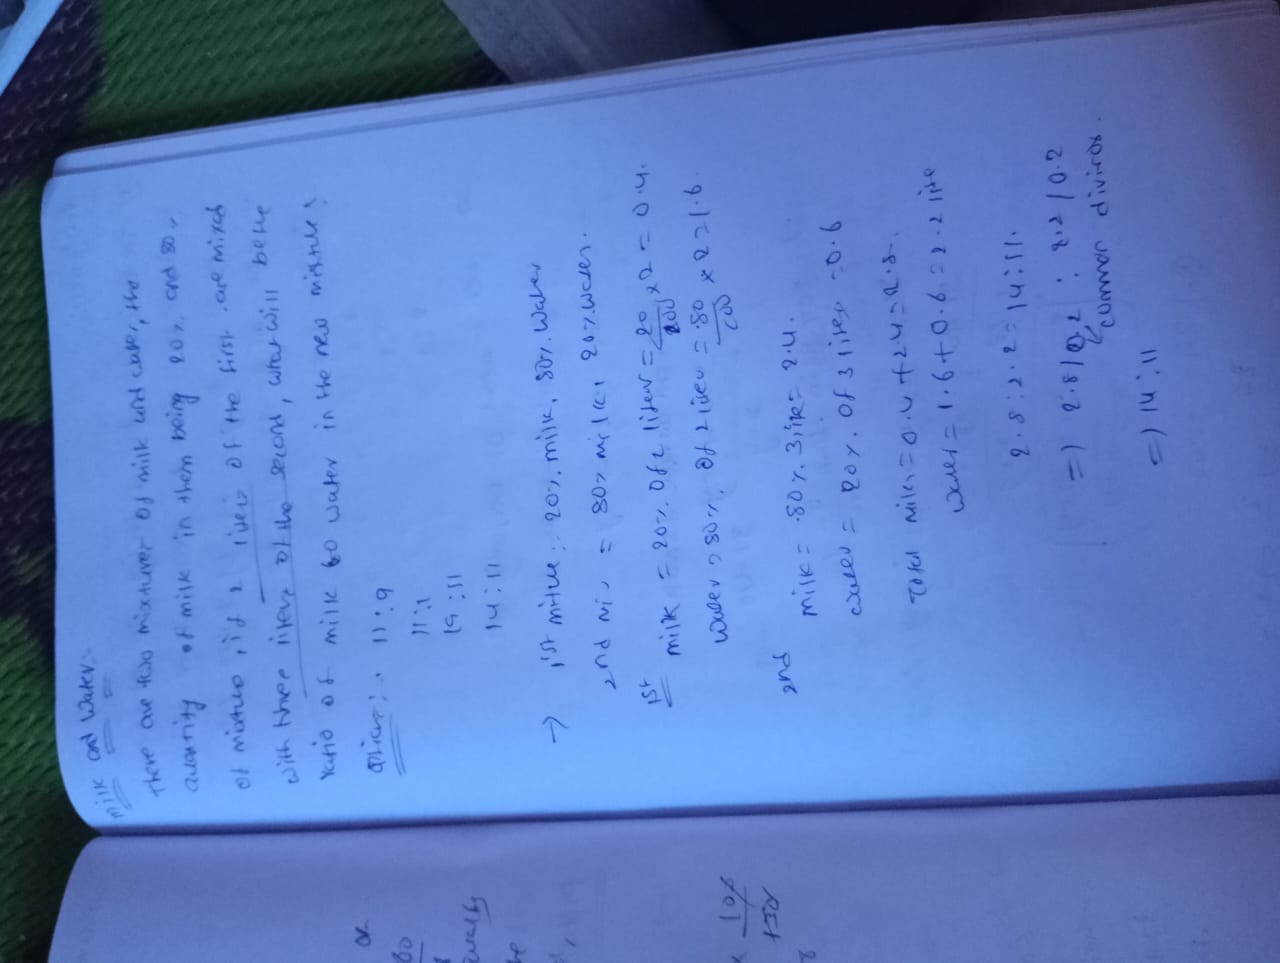 milk and Water:-
there are two mixtures of milk and water, the
quantity of milk in them being 20% and 80%
of mixture, if 2 liters of the first are mixed
with three liters of the second, what will be the
ratio of milk to water in the new mixture?
Option:- 11:9
11:1
19:11
14:11
→ 1st mixtue: 20% milk, 80% water
2nd mi, = 80% milk, 20% water.
1st milk = 20% of 2 liter = 20/100 x 2 = 0.4.
water = 80% of 2 liter = 80/100 x 2 = 1.6.
2nd milk = 80% 3 litr = 2.4.
water = 20% of 3 liter = 0.6
Total milk = 0.4 + 2.4 = 2.8.
water = 1.6 + 0.6 = 2.2 litre
2.8 : 2.2 = 14 : 11.
=) 2.8/0.2 : 2.2/0.2
common divisor.
=) 14:11
or
80
equally
the
10x